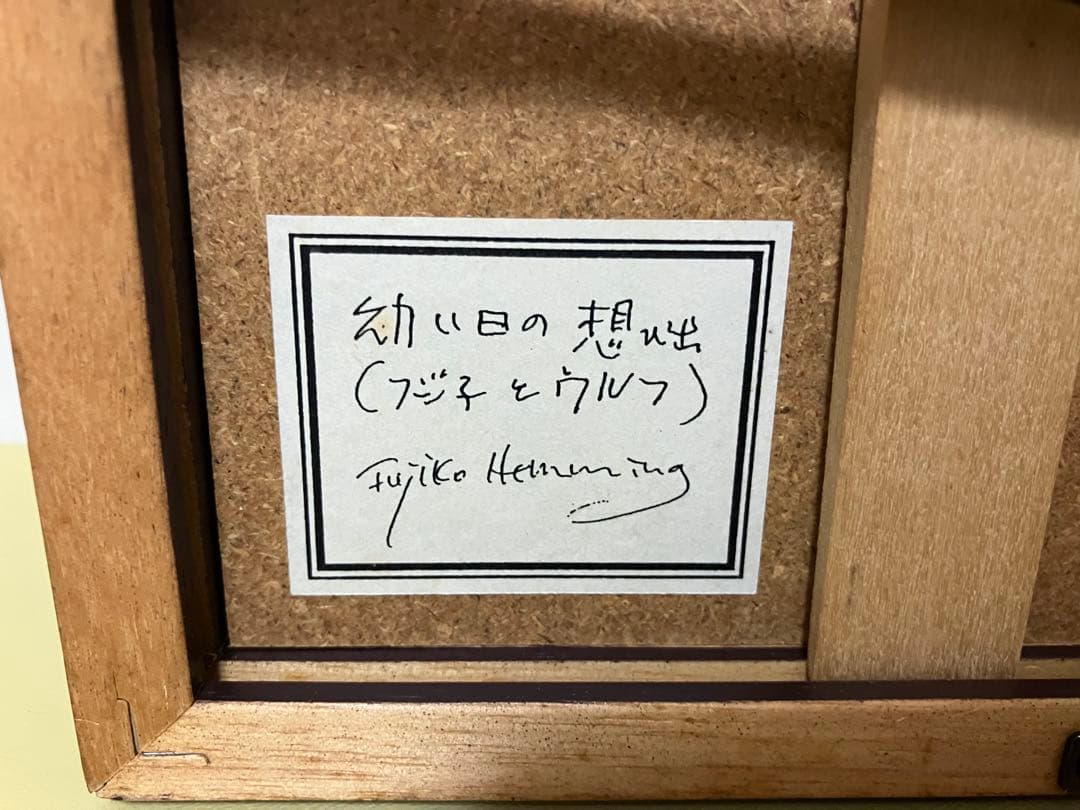 幼い日の想い出
(フジ子とウルフ)
Fujiko Hemming